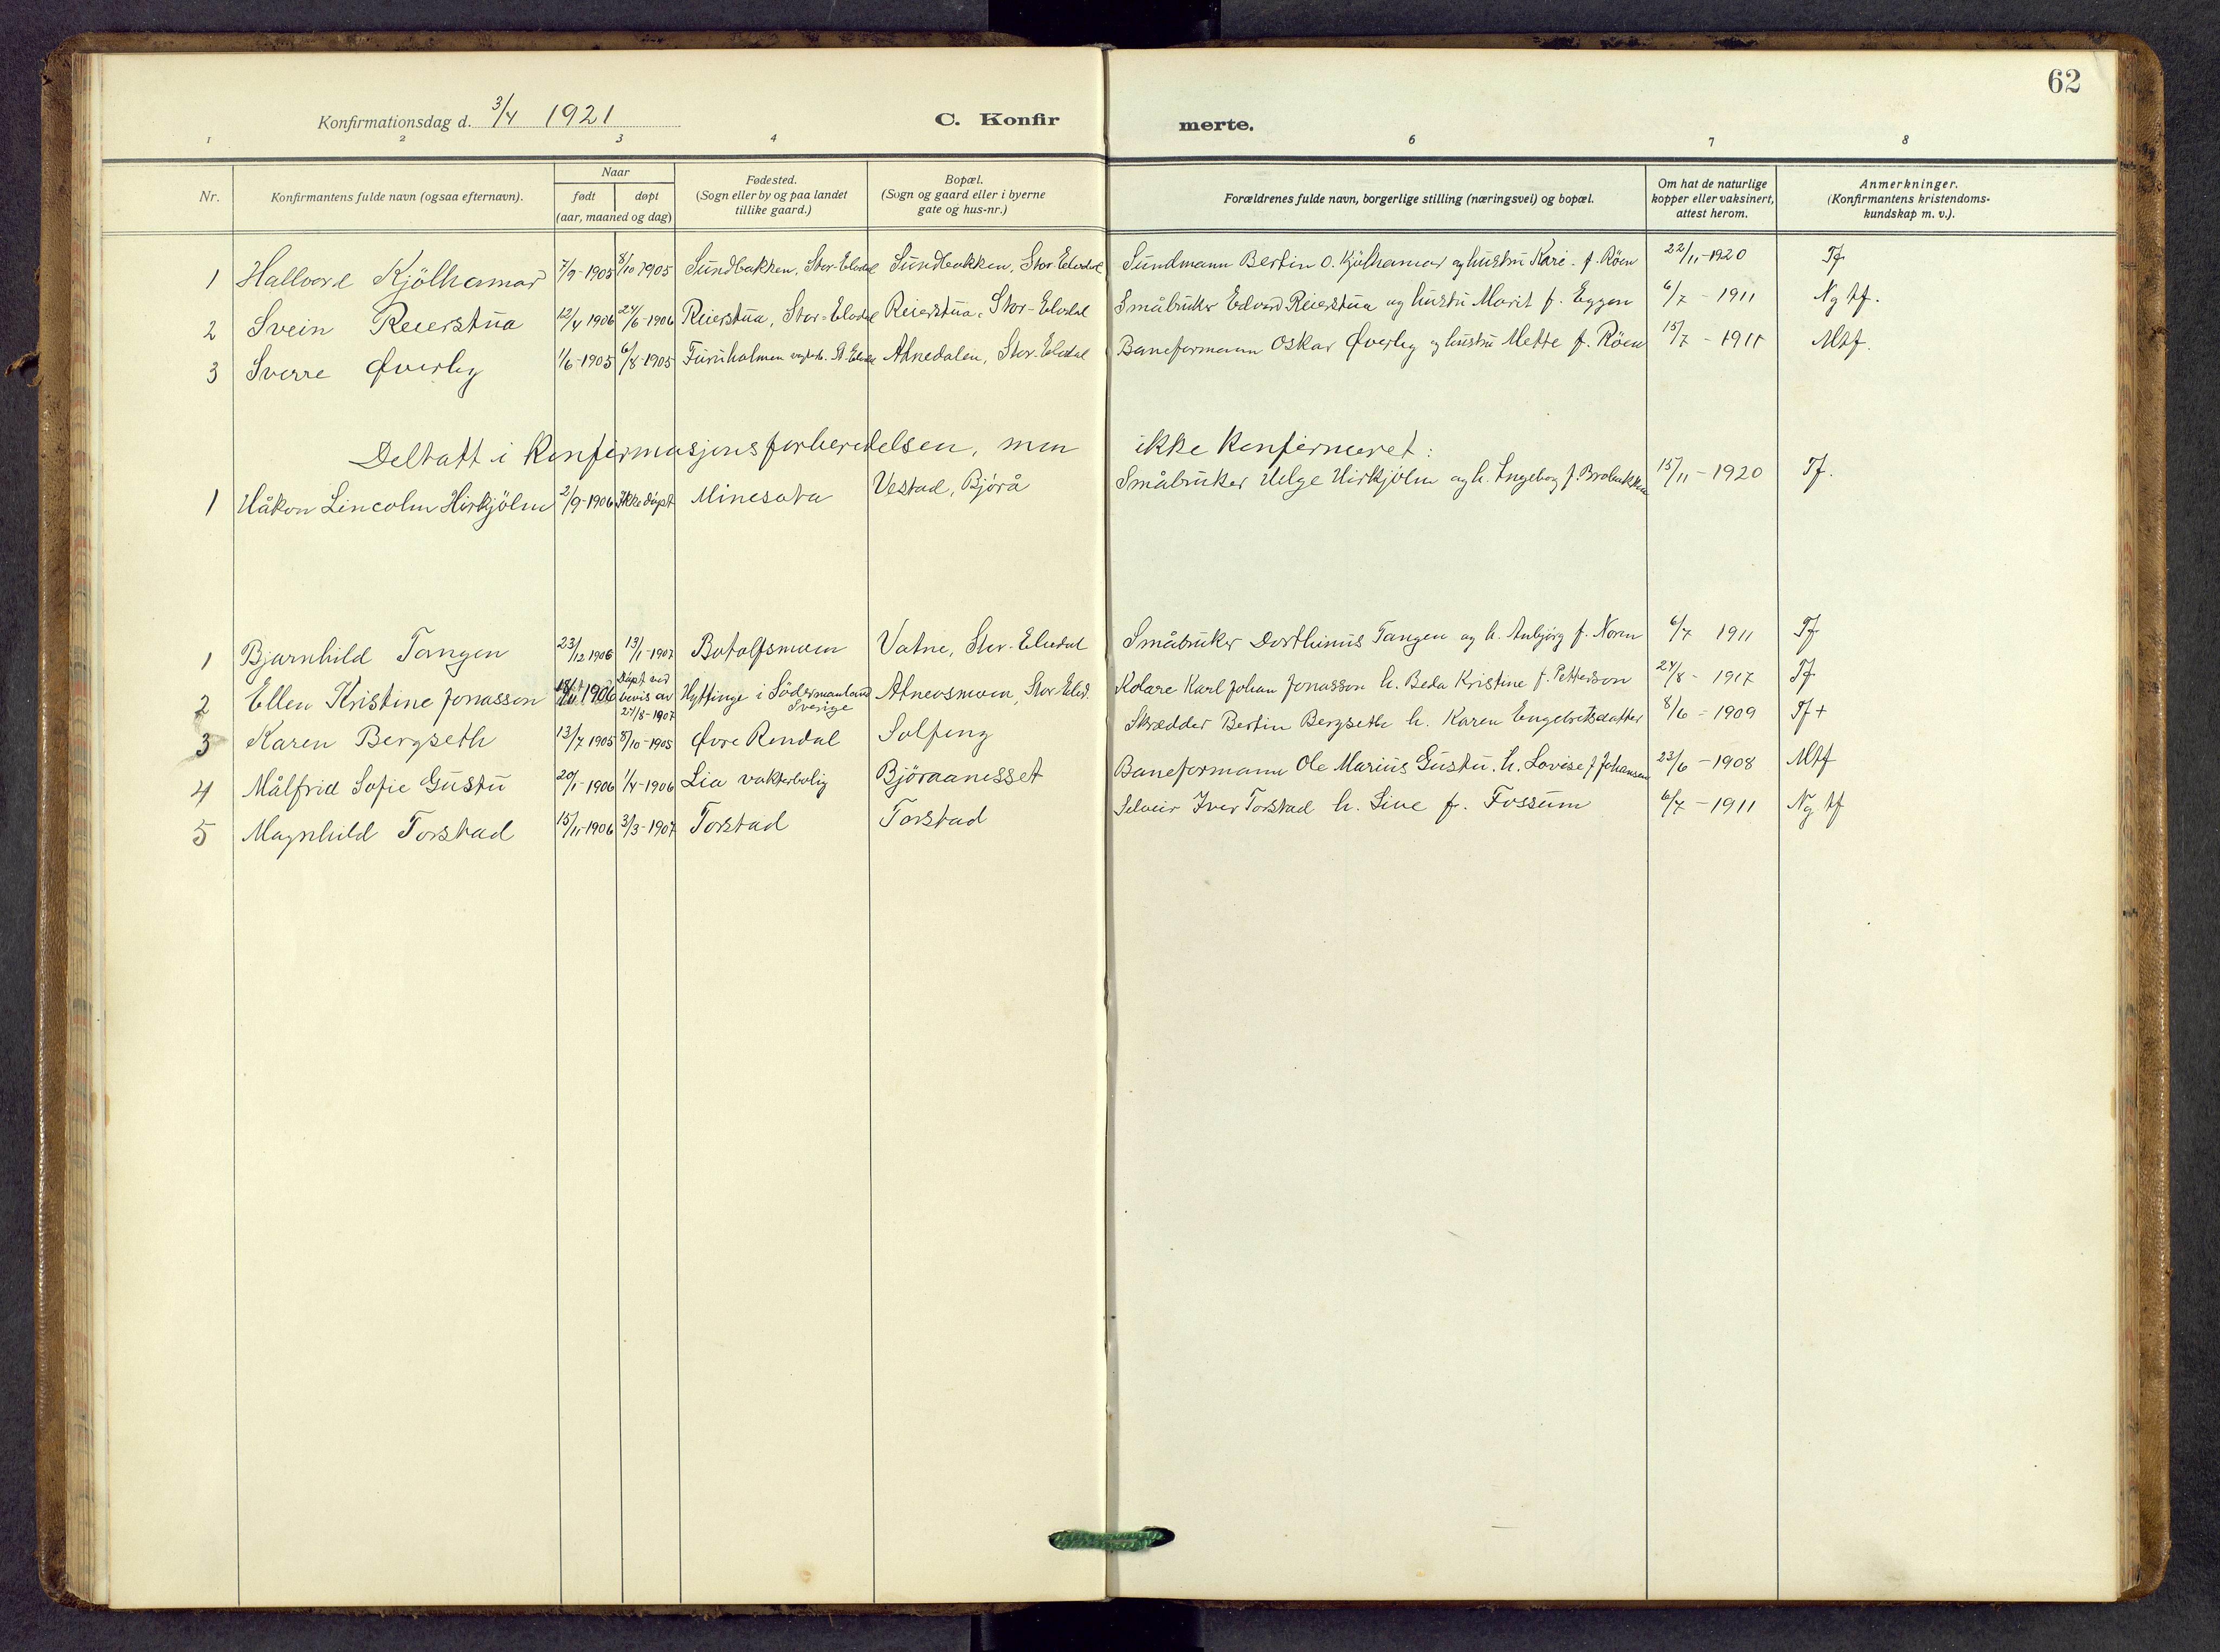 62
Konfirmationsdag d. 3/4 1921 C. Konfir merte.
1 2 3 4 6 7 8
Nr. Konfirmantens fulde navn (ogsaa efternavn). Naar født døpt (aar, maaned og dag) Fødested. (Sogn eller by og paa landet tillike gaard.) Bopæl. (Sogn og gaard eller i byerne gate og hus-nr.) Forældrenes fulde navn, borgerlige stilling (næringsvei) og bopæl. Om hat de naturlige kopper eller vaksinert, attest herom. Anmerkninger. (Konfirmantens kristendoms-kundskap m. v.).
1 Hallvard Kjölhamar 7/9-1905 8/10 1905 Sundbakken, Stor-Elvdal Sundbakken, Stor-Elvdal Sundmann Bertin O. Kjölhamar og hustru Kari f. Röen 22/11-1920 Tf
2 Svein Reierstua 12/4 1906 24/6-1906 Reierstua, Stor-Elvdal Reierstua, Stor-Elvdal Småbruker Edvard Reierstua og hustru Marit f. Eggen 6/7 - 1911 Ng tf.
3 Sverre Øverby 1/6-1905 6/8-1905 Furuholmen St. Elvdal Atnedalen, Stor-Elvdal Baneformann Oskar Øverby og hustru Mette f. Röen 15/7 - 1911 Mtf.
Deltatt i Konfirmasjonsforberedelsen, men ikke Konfirmeret:
1 Håkon Lincoln Hirkjölm 2/9-1906 Ikke döpt Minesota Vestad, Bjørå Småbruker Helge Hirkjölm og h. Ingeborg f. Brobakken 15/11-1920 Tf.
1 Bjarnhild Tangen 23/12 1906 13/1-1907 Botolfsmoen Vatne, Stor-Elvdal Småbruker Dorthinus Tangen og h. Anbjörg f. Noren 6/7 1911 Tf
2 Ellen Kristine Jonasson 1906 Döpt ved bevis av 27/8-1907 Hyttinge i Södermanland Sverige Atneosmoen, Stor-Elvd. Kolare Karl Johan Jonasson h. Beda Kristine f. Petterson 24/8 - 1917 Tf
3 Karen Bergseth 13/7 1905 8/10-1905 Øvre Rendal Solfeng Skrædder Bertin Bergseth h. Karen Engebretsdatter 8/6 - 1909 Tf+
4 Målfrid Sofie Gustu 20/1-1906 1/4-1906 Lia vokterbolig Björaanesset Baneformann Ole Marius Gustu. h. Lovise f Johansen 23/6 - 1908 Mtf
5 Magnhild Torstad 15/11-1906 3/3-1907 Torstad Torstad Selveier Iver Torstad h. Live f. Fossum 6/7 - 1911 Ng tf